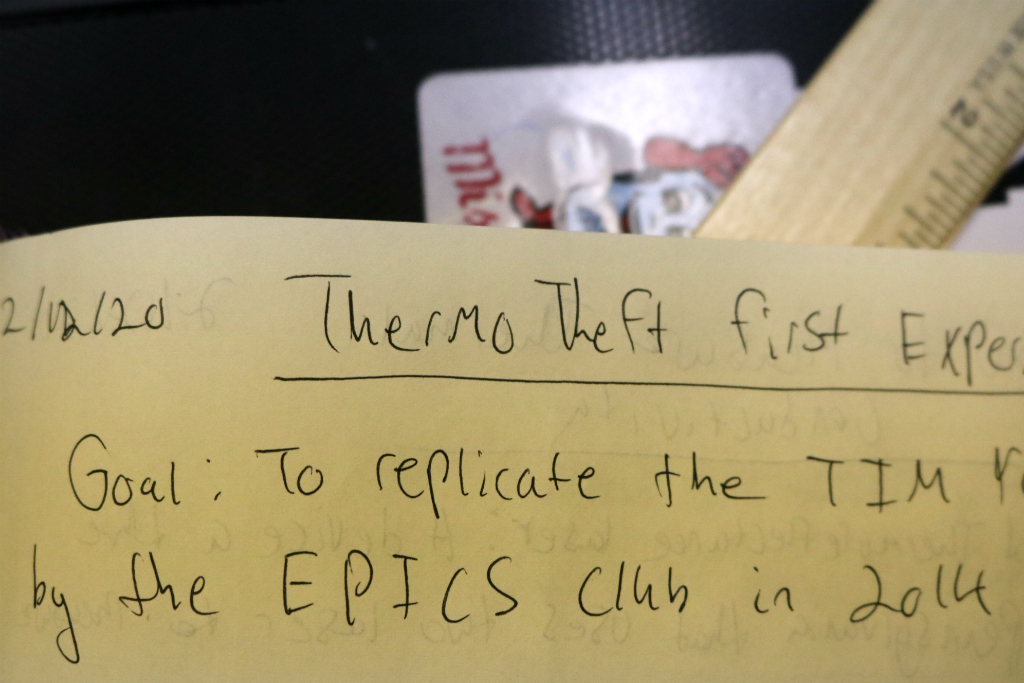 Mis
2
2/12/20 Thermo Theft first Exper
Goal: To replicate the TIM
by the EPICS Club in 2014